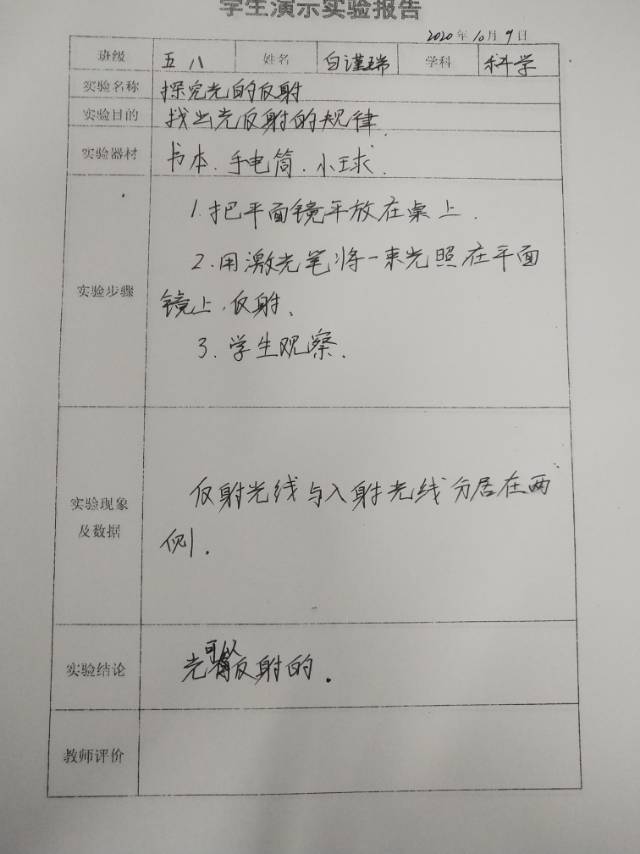 学生演示实验报告
2020年10月9日
班级 五八 姓名 白谨瑞 学科 科学
实验名称 探究光的反射
实验目的 找出光反射的规律
实验器材 书本.手电筒.小球.
实验步骤
1.把平面镜平放在桌上.
2.用激光笔将一束光照在平面
镜上,反射、
3.学生观察.
实验现象
及数据
反射光线与入射光线分居在两
侧.
实验结论 光可以反射的.
教师评价